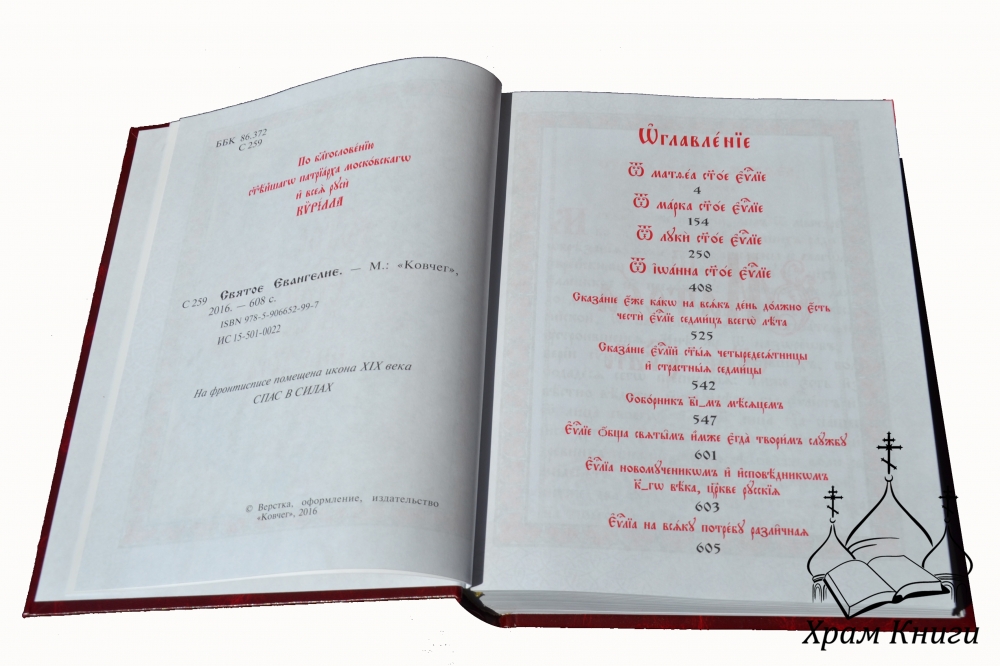 ББК 86.372
С 259
По бл҃гослове́нїю
ст҃ѣ́йшагѡ патрїа́рха моско́вскагѡ
и҆ всеѧ̀ рꙋсѝ
КѴРІ́ЛЛА
С 259 Святое Евангелие. — М.: «Ковчег»,
2016. — 608 с.
ISBN 978-5-906652-99-7
ИС 15-501-0022
На фронтисписе помещена икона XIX века
СПАС В СИЛАХ
© Верстка, оформление, издательство
«Ковчег», 2016
Ѡ҆главле́нїе
Ѿ матѳе́а ст҃о́е є҆ѵⷢ҇лїе
4
Ѿ ма́рка ст҃о́е є҆ѵⷢ҇лїе
154
Ѿ лꙋкѝ ст҃о́е є҆ѵⷢ҇лїе
250
Ѿ і҆ѡа́нна ст҃о́е є҆ѵⷢ҇лїе
408
Сказа́нїе є҆́же ка́кѡ на всѧ́къ де́нь до́лжно є҆́сть
честѝ є҆ѵⷢ҇лїе седми́цъ всегѡ̀ лѣ́та
525
Сказа́нїе є҆ѵⷢ҇лїй ст҃ы́ѧ четыредесѧ́тницы
и҆ стра́стныѧ седми́цы
542
Собо́рникъ в҃і_мъ мѣ́сѧцемъ
547
Є҆ѵⷢ҇лїе ѻ҆́бща свѧты́мъ и҆̀мже є҆гда̀ твори́мъ слꙋ́жбꙋ
601
Є҆ѵⷢ҇лїа новомꙋ́ченикѡмъ и҆ и҆сповѣ́дникѡмъ
к҃_гѡ вѣ́ка, цр҃кве рꙋ́сскїѧ
603
Є҆ѵⷢ҇лїа на всѧ́кꙋ потре́бꙋ разли́чнаѧ
605
Храм Книги